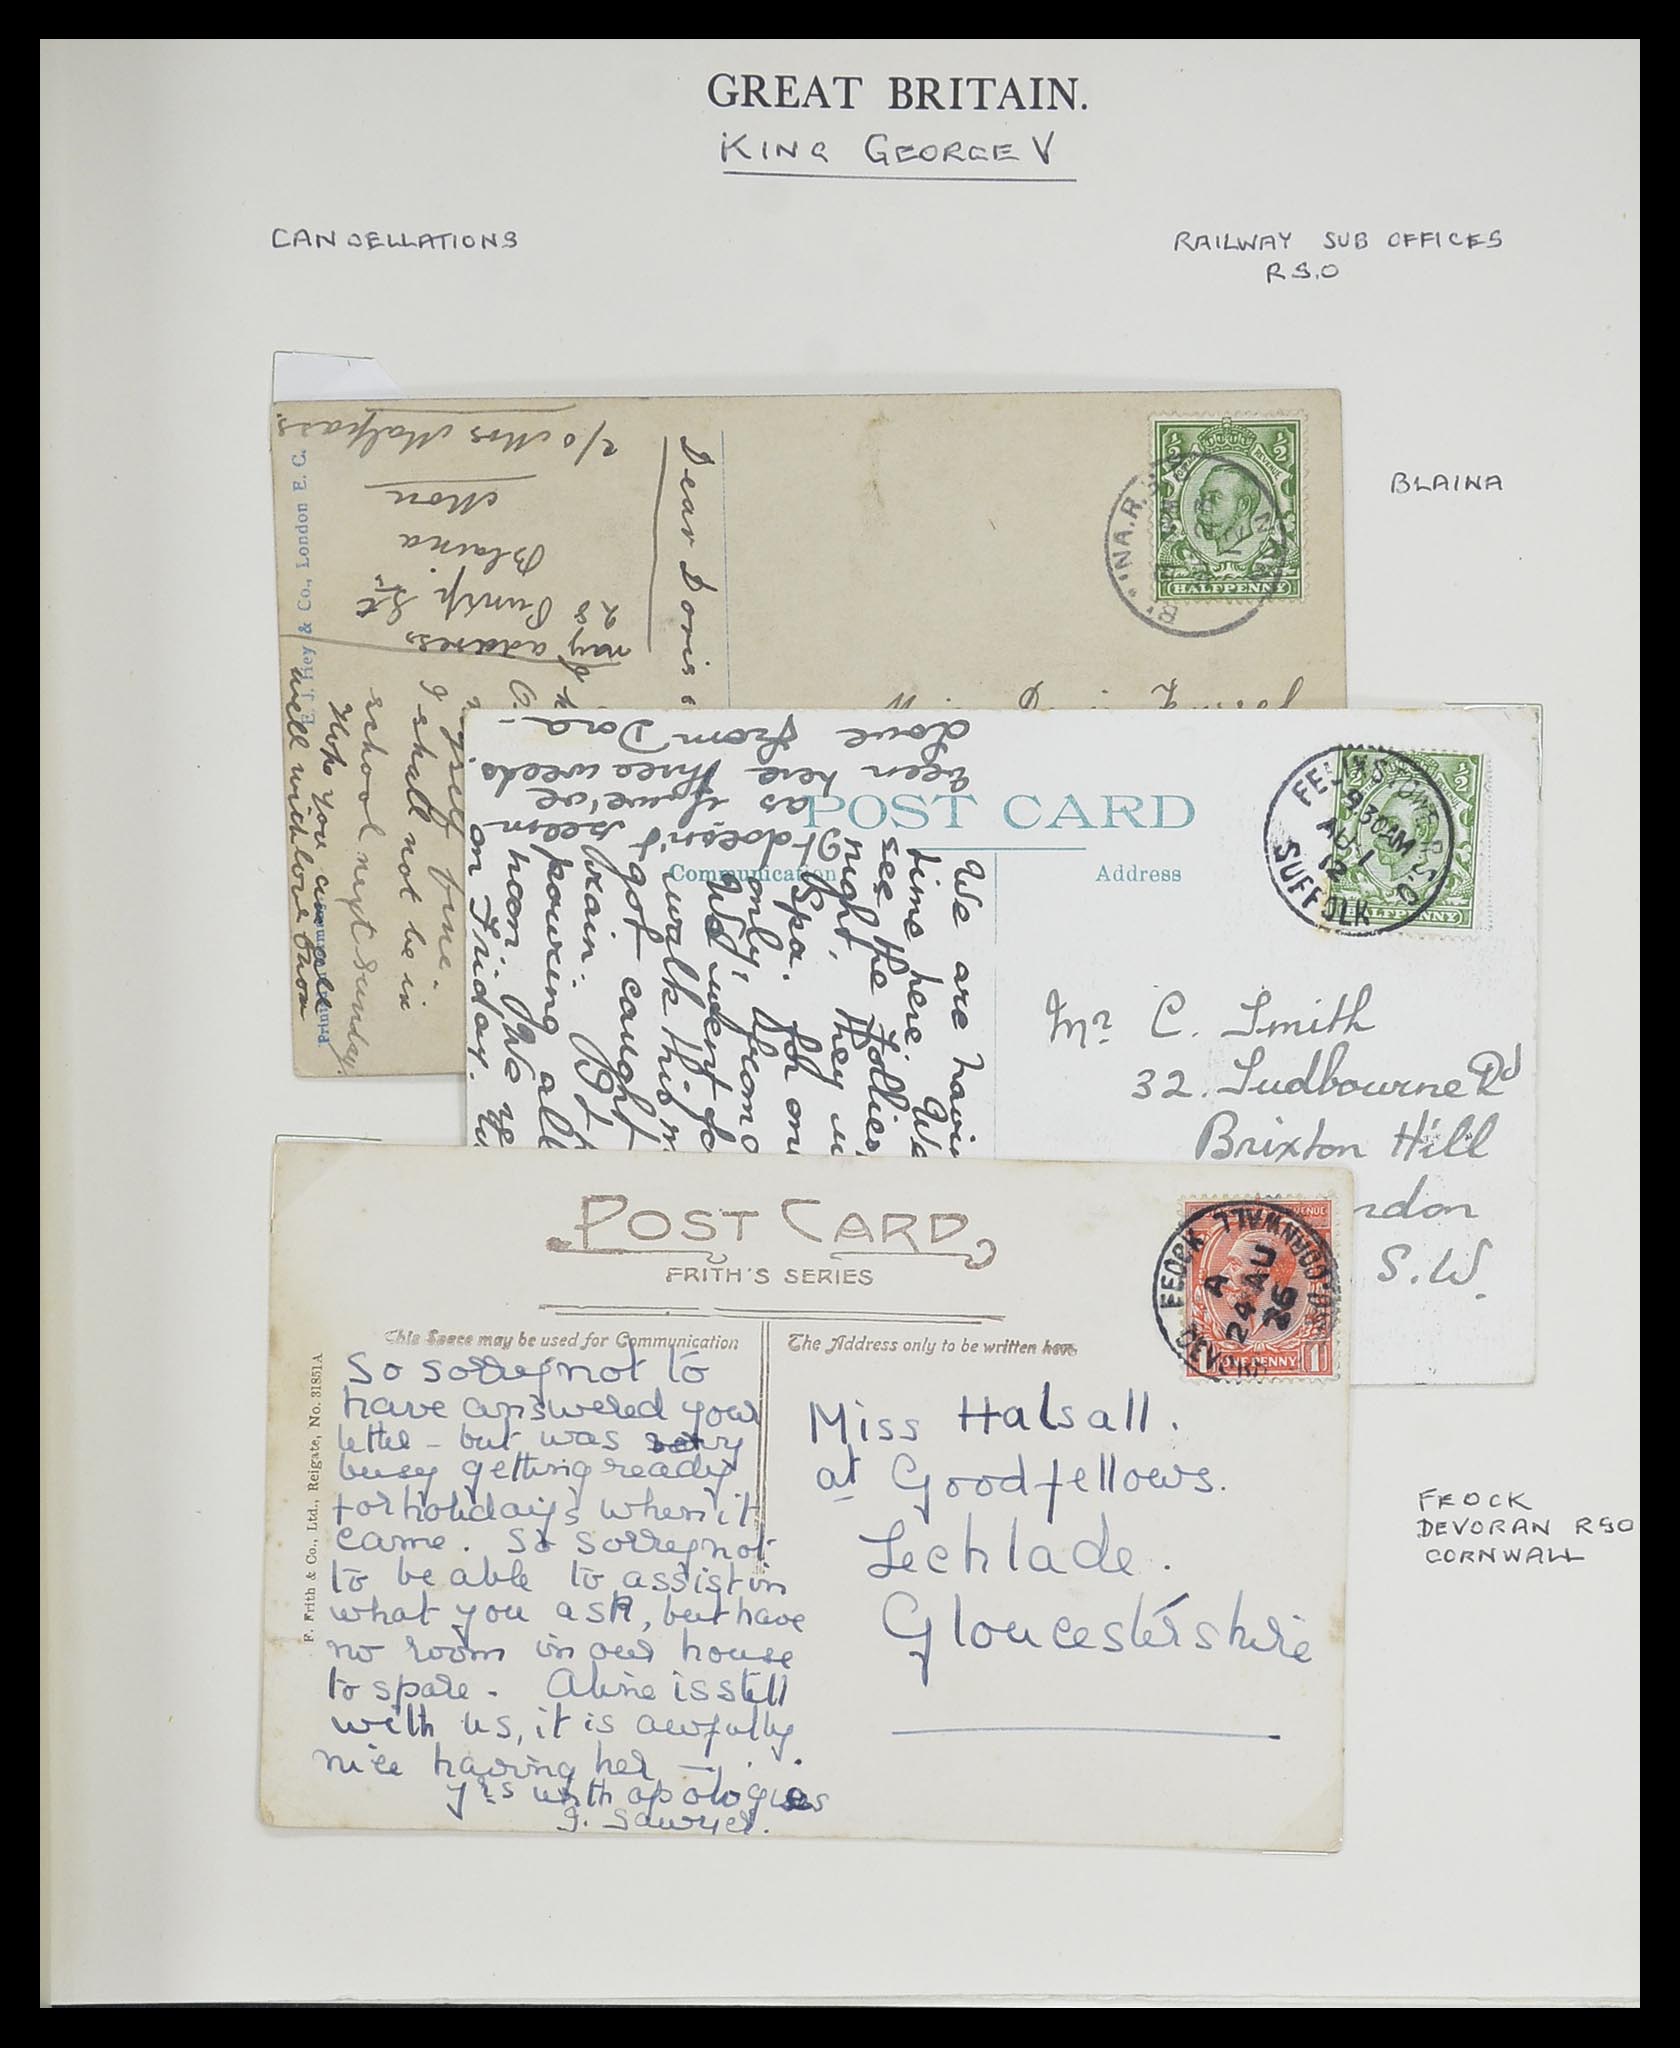 GREAT BRITAIN.
KING GEORGE V
CANCELLATIONS
RAILWAY SUB OFFICES
R S.O
BLAINA
c/o Mrs Malpass.
Mon
Blaina
28 St
my address
Dear Doris
myself fine.
I shall not be in
school next Sunday.
Hope you are all
well with love from
E. J. Hey & Co., London E. C.
½ ½
POSTAL REVENUE
HALFPENNY
INA.R.S.
POST CARD
Communication
Address
We are havin
time here. We
see the Follies
night, they w
Spa.
only,
We went fo
walk this m
got caught
rain.
pouring all
noon. We
on Friday.
It doesn't seem
as if we've
been here three weeks.
love from Dora-
FELIXSTOWE R.S.O.
9.30AM
AU 1
12
SUFFOLK
½
HALFPENNY
Mr C. Smith
32. Sudbourne Rd
Brixton Hill
ndon
S.W.
POST CARD
FRITH'S SERIES
This Space may be used for Communication
The Address only to be written here
F. Frith & Co., Ltd., Reigate, No. 31851A
So sorry not to
have answered your
letter - but was very
busy getting ready
for holidays when it
came. So sorry not
to be able to assist in
what you ask, but have
no room in our house
to spare - Aline is still
with us, it is awfully
nice having her -
yrs with apologies
J. Sawyer.
FEOCK CORNWALL
A
24 AU
26
DEVORAN
REVENUE
1 ONE PENNY 1
Miss Halsall.
at Goodfellows.
Lechlade.
Gloucestershire
FEOCK
DEVORAN RSO
CORNWALL